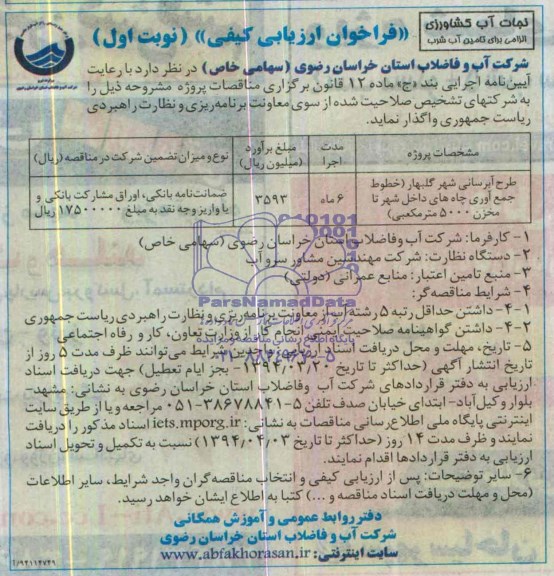 نجات آب کشاورزی
الزامی برای تامین آب شرب
«فراخوان ارزیابی کیفی» (نوبت اول)
شرکت آب و فاضلاب استان خراسان رضوی (سهامی خاص) در نظر دارد با رعایت
آیین‌نامه اجرایی بند «ج» ماده ۱۲ قانون برگزاری مناقصات پروژه مشروحه ذیل را
به شرکتهای تشخیص صلاحیت شده از سوی معاونت برنامه‌ریزی و نظارت راهبردی
ریاست جمهوری واگذار نماید.
مشخصات پروژه
مدت اجرا
مبلغ برآورد (میلیون ریال)
نوع و میزان تضمین شرکت در مناقصه (ریال)
طرح آبرسانی شهر گلبهار (خطوط
جمع آوری چاه های داخل شهر تا
مخزن ۵۰۰۰ مترمکعبی)
۶ ماه
۳۵۹۳
ضمانت‌نامه بانکی، اوراق مشارکت بانکی و
یا واریز وجه نقد به مبلغ ۱۷۵۰۰۰۰۰۰ ریال
۱- کارفرما: شرکت آب وفاضلاب استان خراسان رضوی (سهامی خاص)
۲- دستگاه نظارت: شرکت مهندسین مشاور سرو آب
۳- منبع تامین اعتبار: منابع عمرانی (دولتی)
۴- شرایط مناقصه‌گر:
۴-۱- داشتن حداقل رتبه ۵ رشته آب از معاونت برنامه‌ریزی و نظارت راهبردی ریاست جمهوری
۴-۲- داشتن گواهینامه صلاحیت ایمنی انجام کار از وزارت تعاون، کار و رفاه اجتماعی
۵- تاریخ، مهلت و محل دریافت اسناد ارزیابی: واجدین شرایط می‌توانند ظرف مدت ۵ روز از
تاریخ انتشار آگهی (حداکثر تا تاریخ ۱۳۹۴/۰۳/۲۰- بجز ایام تعطیل) جهت دریافت اسناد
ارزیابی به دفتر قراردادهای شرکت آب وفاضلاب استان خراسان رضوی به نشانی: مشهد-
بلوار وکیل‌آباد- ابتدای خیابان صدف تلفن ۵-۳۸۶۷۸۸۴۱-۰۵۱ مراجعه ویا از طریق سایت
اینترنتی پایگاه ملی اطلاع‌رسانی مناقصات به نشانی: iets.mporg.ir اسناد مذکور را دریافت
نمایند و ظرف مدت ۱۴ روز (حداکثر تا تاریخ ۱۳۹۴/۰۴/۰۳) نسبت به تکمیل و تحویل اسناد
ارزیابی به دفتر قراردادها اقدام نمایند.
۶- سایر توضیحات: پس از ارزیابی کیفی و انتخاب مناقصه‌گران واجد شرایط، سایر اطلاعات
(محل و مهلت دریافت اسناد مناقصه و ...) کتبا به اطلاع ایشان خواهد رسید.
دفتر روابط عمومی و آموزش همگانی
شرکت آب و فاضلاب استان خراسان رضوی
سایت اینترنتی: www.abfakhorasan.ir
ParsNamadData